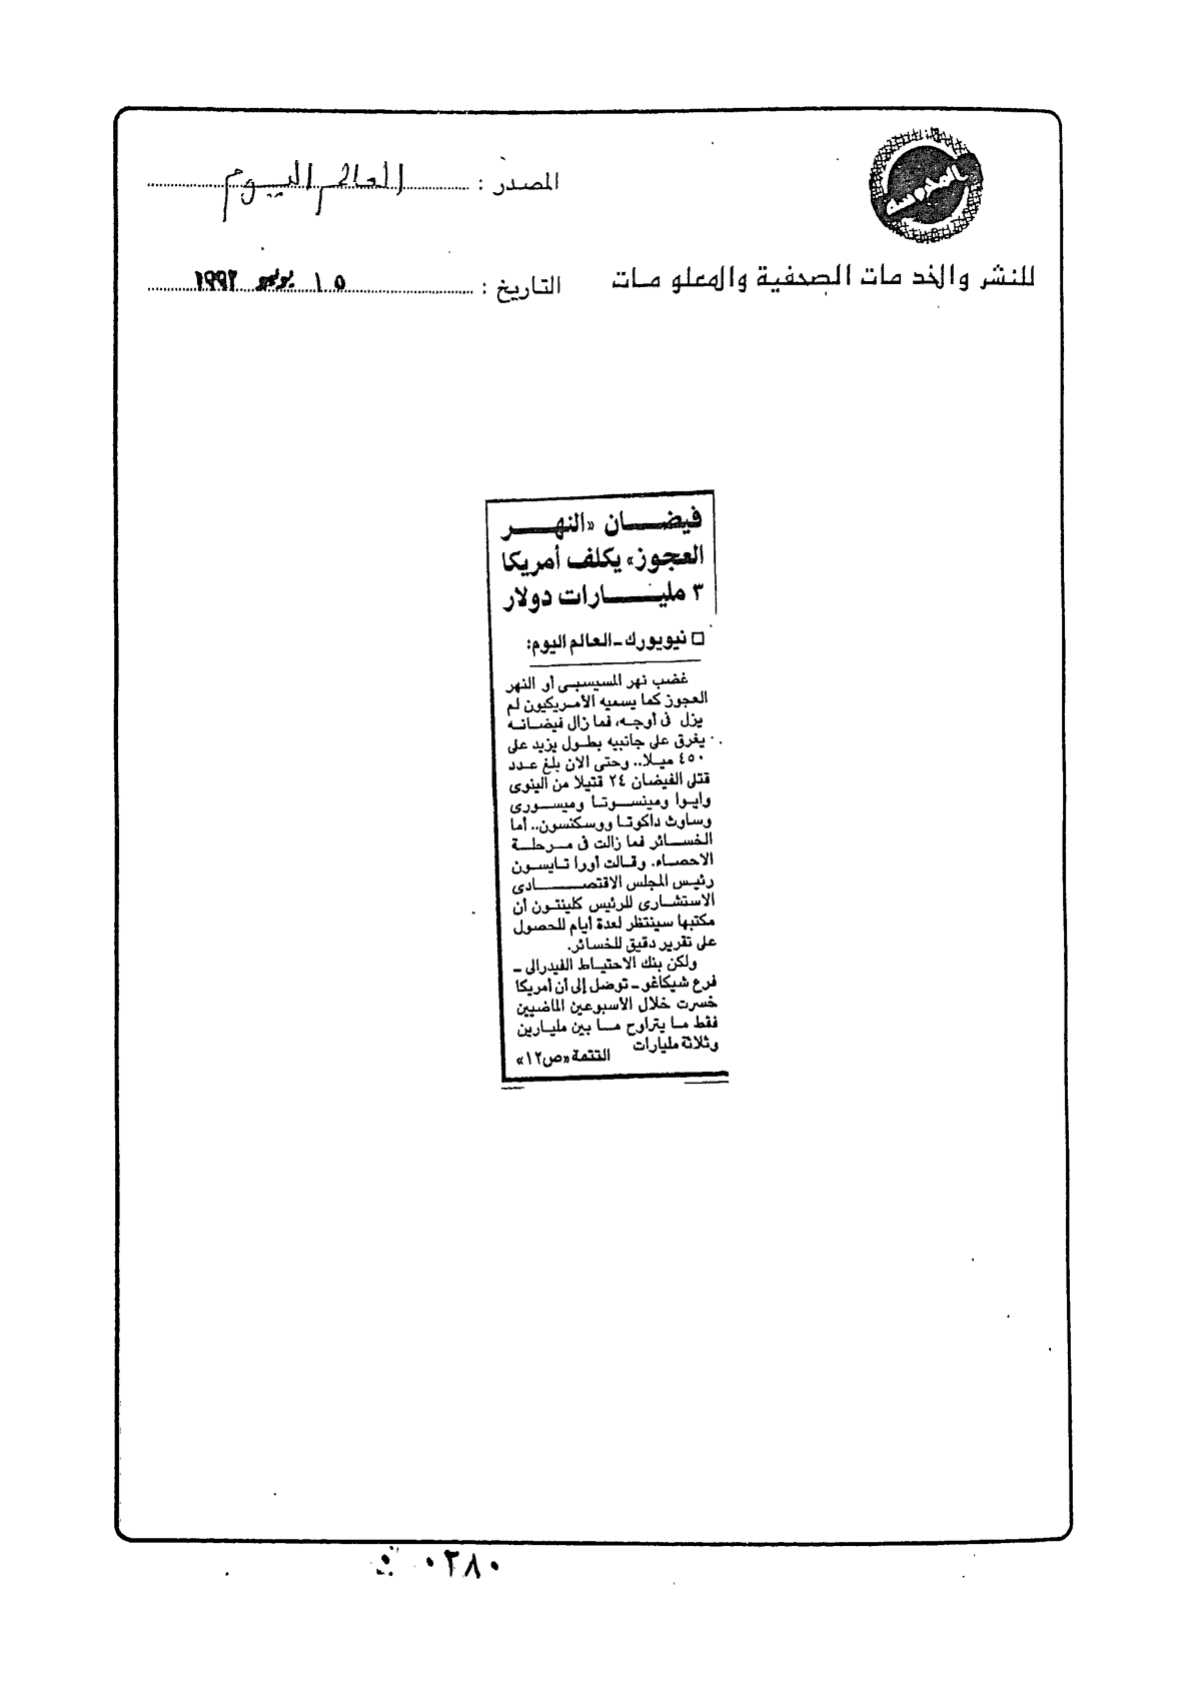 المصدر : العالم اليوم
للنشر والخدمات الصحفية والمعلومات
التاريخ : ١٥ يوليو ١٩٩٣
فيضان «النهر
العجوز» يكلف أمريكا
٣ مليارات دولار
□ نيويورك ـ العالم اليوم:
غضب نهر المسيسبى أو النهر
العجوز كما يسميه الأمريكيون لم
يزل فى أوجه، فما زال فيضانه
يغرق على جانبيه بطول يزيد على
٤٥٠ ميلا.. وحتى الان بلغ عدد
قتلى الفيضان ٢٤ قتيلا من الينوى
وايوا ومينسوتا وميسورى
وساوث داكوتا ووسكنسون.. أما
الخسائر فما زالت فى مرحلة
الاحصاء. وقالت أورا تايسون
رئيس المجلس الاقتصادى
الاستشارى للرئيس كلينتون أن
مكتبها سينتظر لعدة أيام للحصول
على تقرير دقيق للخسائر.
ولكن بنك الاحتياط الفيدرالى ـ
فرع شيكاغو ـ توصل إلى أن أمريكا
خسرت خلال الأسبوعين الماضيين
فقط ما يتراوح ما بين مليارين
وثلاثة مليارات
التتمة «ص١٢»
٠٢٨٠